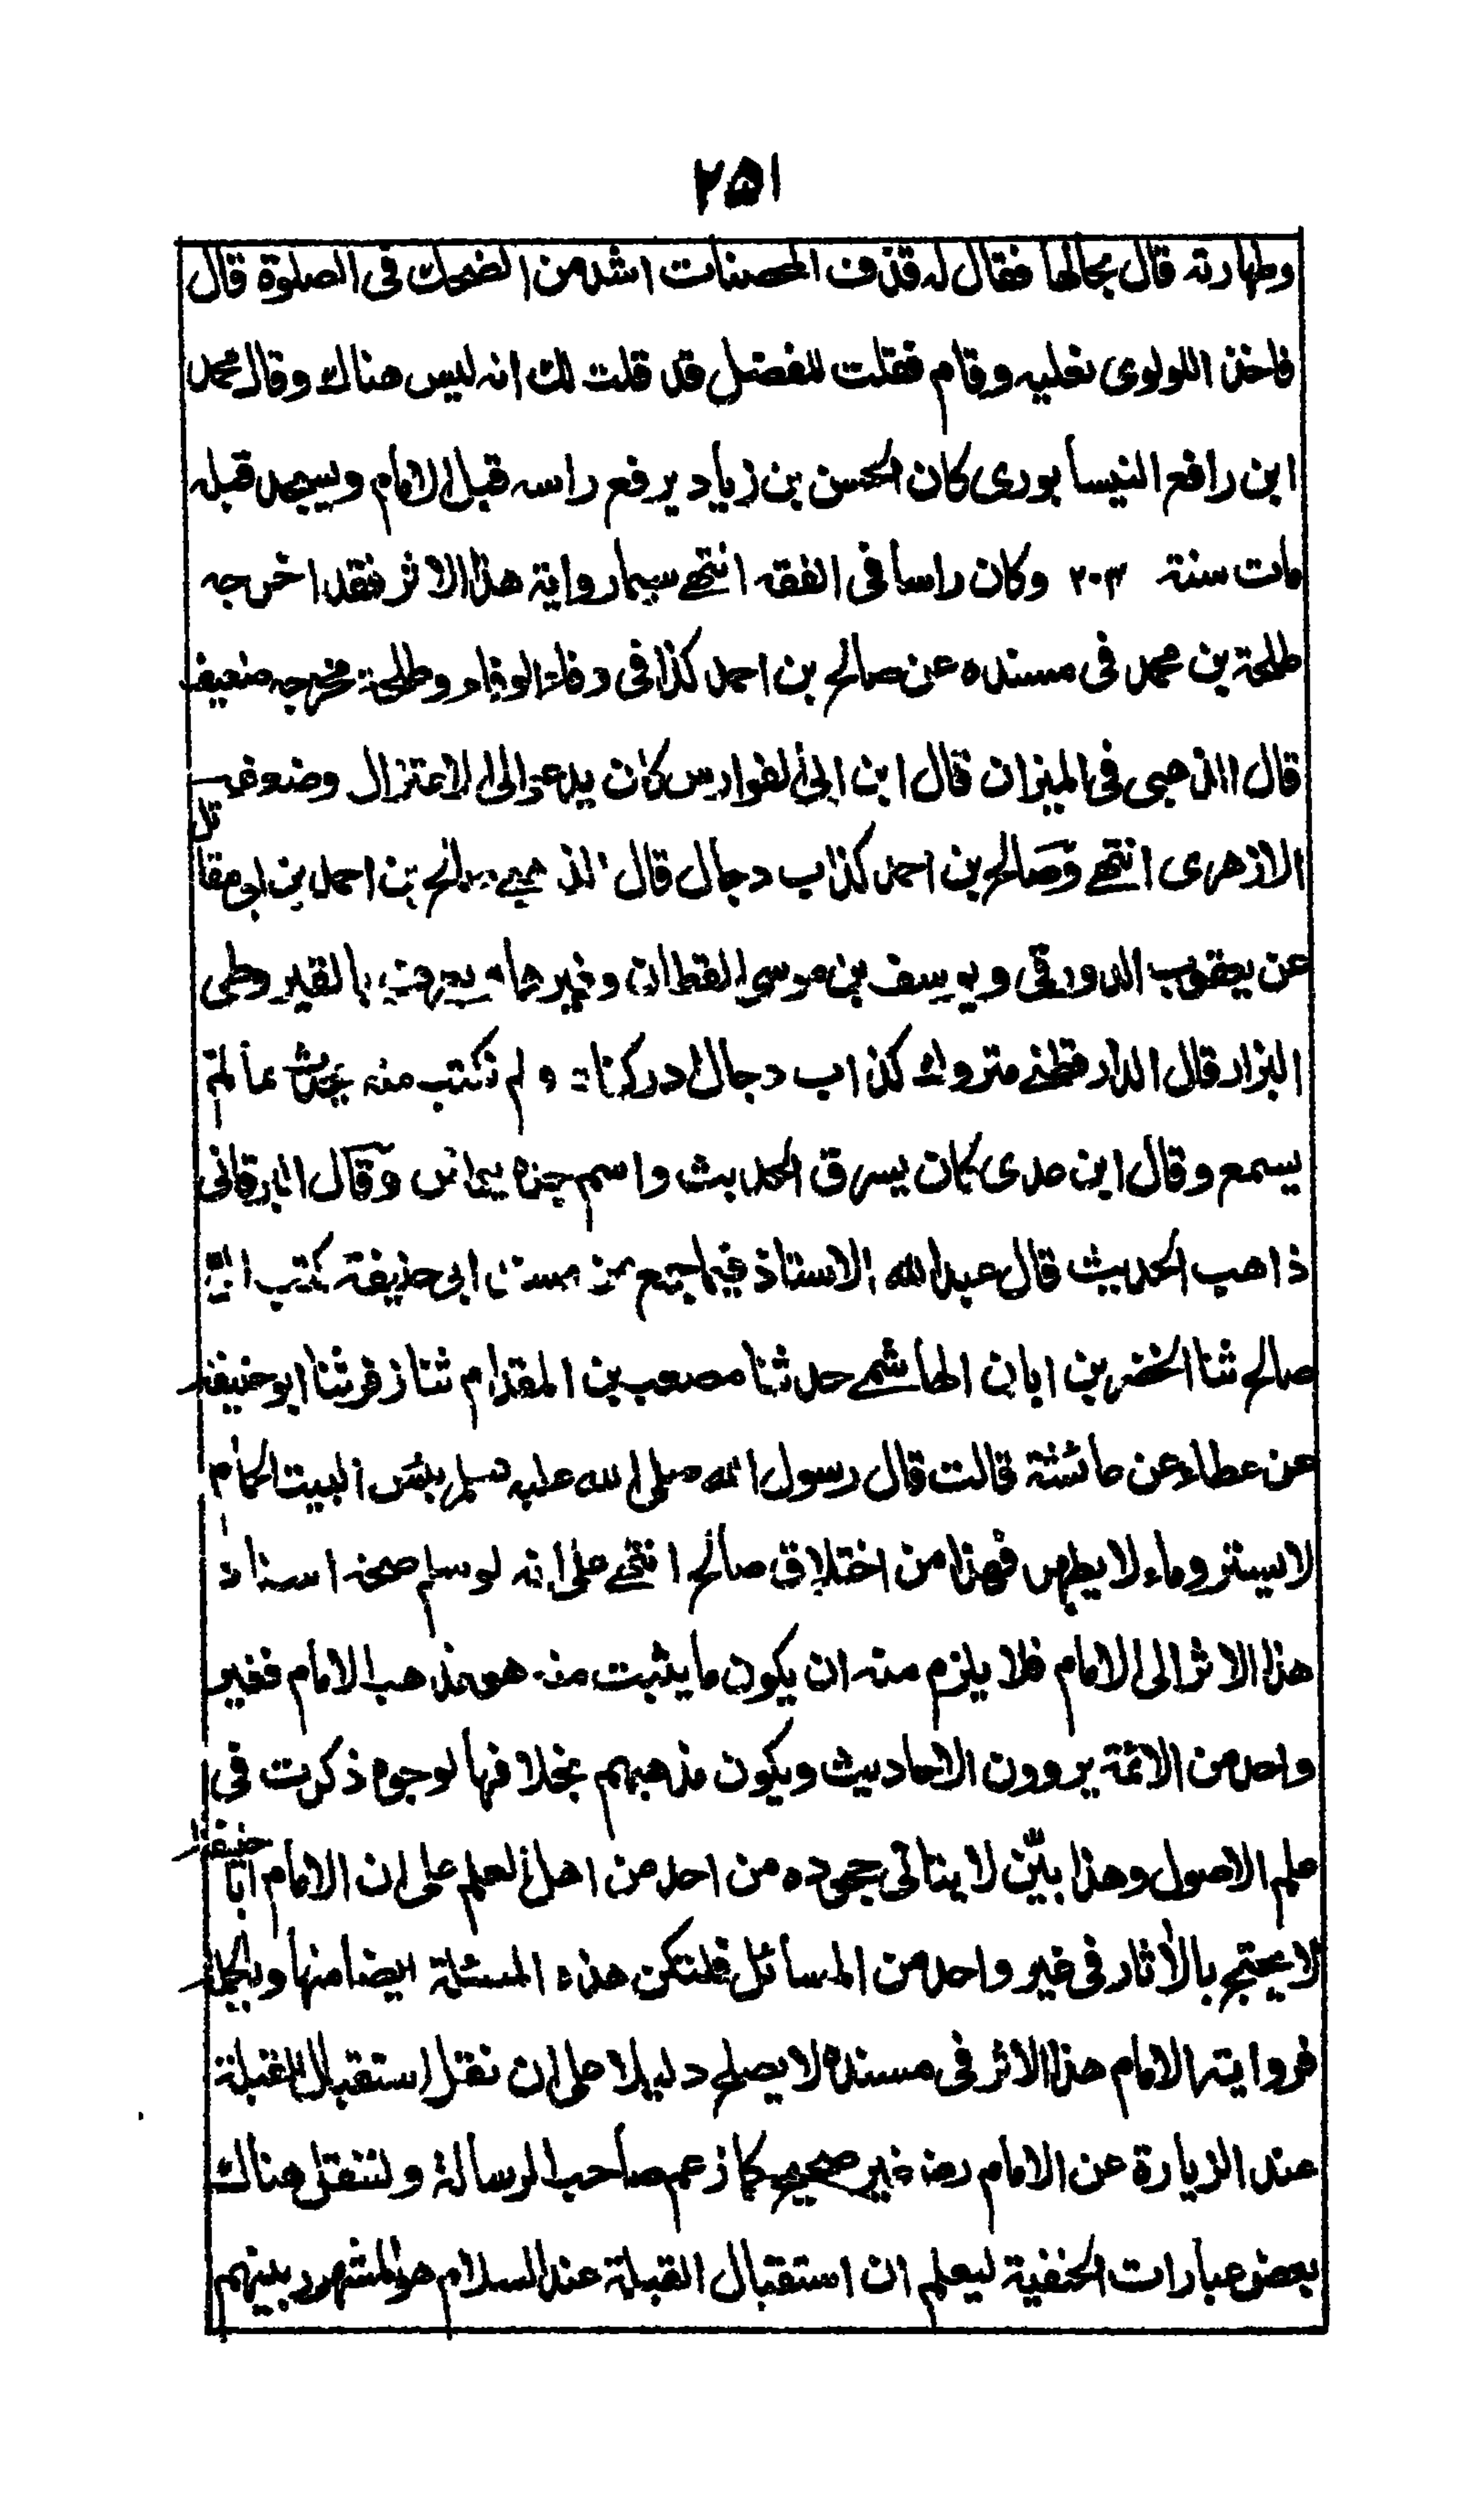 ٢٥١
وطهارته قال بحالها فقال له قذف المحصنات اشد من الضحك فى الصلوة قال
فاخذ اللولوى نعليه وقام فقلت للفضل قد قلت لك انه ليس هناك وقال محمد
ابن رافع النيسابورى كان الحسن بن زياد يرفع راسه قبل الامام ويسجد قبله
مات سنة ٢٠٣ وكان راسا فى الفقه انتهى سيما رواية هذا الاثر فقد اخرجه
طلحة بن محمد فى مسنده عن صالح بن احمد كذا فى وفاء الوفاء وطلحة مخرجه ضعيف
قال الذهبى فى الميزان قال ابن ابى الفوارس كان يدعو الى الاعتزال وضعفه
الازهرى انتهى وصالح بن احمد كذاب دجال قال الذهبى صالح بن احمد بن ابى مقاتل
عن يعقوب الدورقى ويوسف بن موسى القطان وغيرهما يعرف بالقيراطى
البزار قال الدارقطنى متروك كذاب دجال ادركناه ولم نكتب منه يحدث بما لم
يسمع وقال ابن عدى كان يسرق الحديث واسم جده يونس وقال البرقانى
ذاهب الحديث قال عبدالله الاستاذ فيما جمع من مسند ابى حنيفة كتب الى
صالح ثنا الخضر بن ابان الهاشمى حدثنا مصعب بن المقدام ثنا زفر ثنا ابو حنيفة
عن عطاء عن عائشة قالت قال رسول الله صلى الله عليه وسلم بئس البيت الحمام
لا يستر وماء لا يطهر فهذا من اختلاق صالح انتهى على انه لو سلم صحة اسناد
هذا الاثر الى الامام فلا يلزم منه ان يكون ما يثبت منه هو مذهب الامام فغير
واحد من الائمة يروون الاحاديث ويكون مذهبهم بخلافها لوجوه ذكرت فى
علم الاصول وهذا بيّن لا يتاتى جحوده من احد من اهل العلم على ان الامام ابا حنيفة
لا يحتج بالأثار فى غير واحد من المسائل فلتكن هذه المسئلة ايضا منها وبالجملة
فرواية الامام هذا الاثر فى مسنده لا يصلح دليلا على ان نقل استقبال القبلة
عند الزيارة عن الامام رضه غير صحيح كما زعم صاحب الرسالة ولننقل هناك
بعض عبارات الحنفية ليعلم ان استقبال القبلة عند السلام هو المشهور بينهم